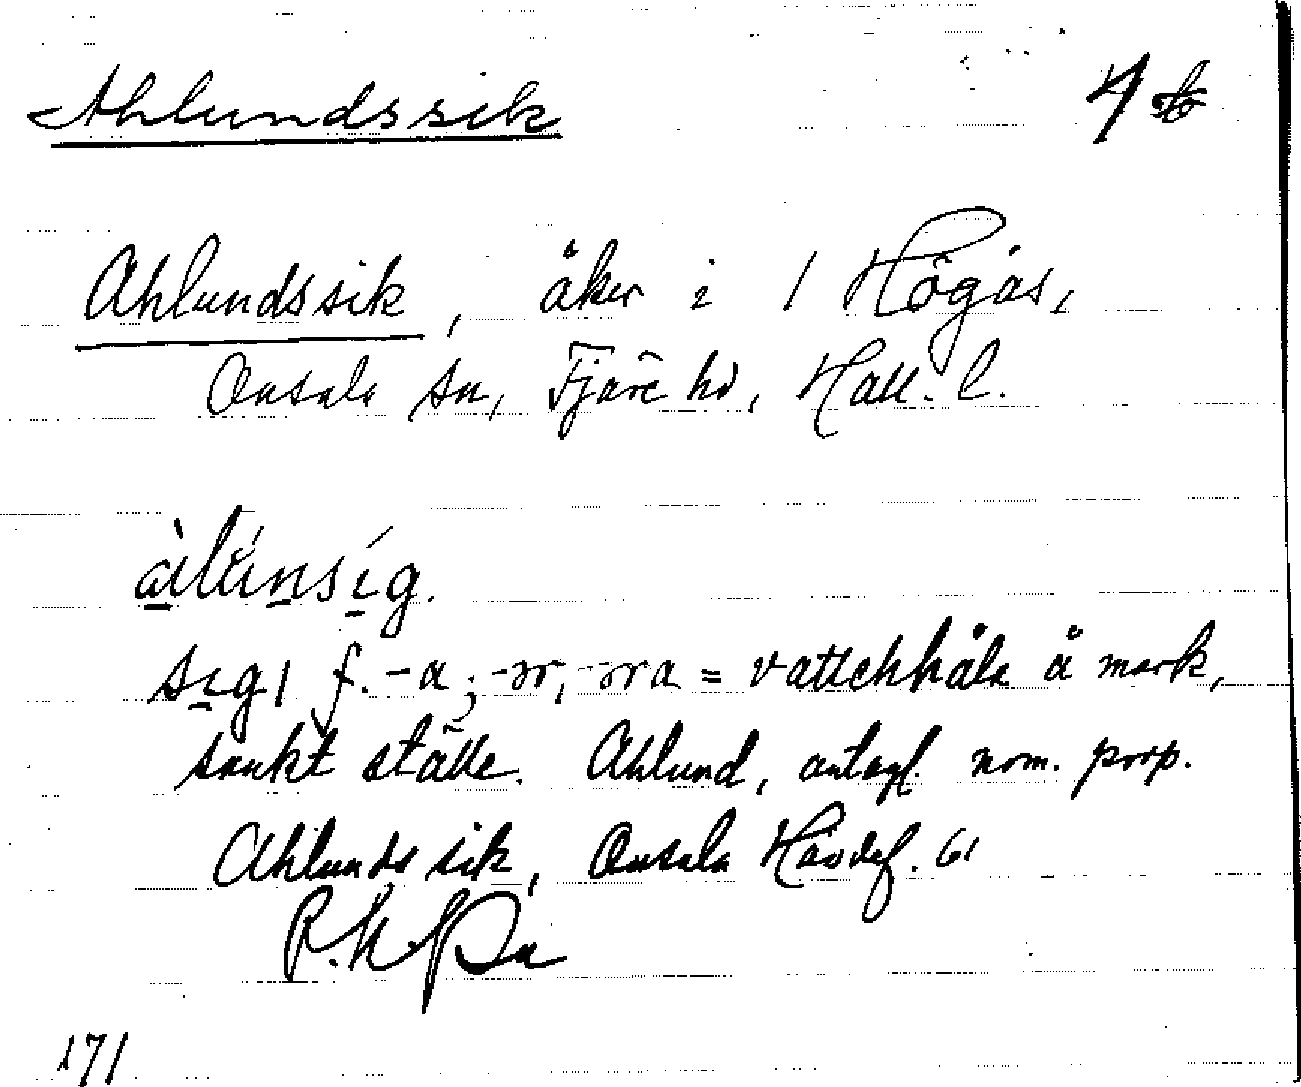 Ahlundssik
Ahlundssik, åker i 1 Högås,
Onsala sn, Fjäre hd, Hall. l.
àlúnsíg.
sig, f. -a; -ər, -əra = vattenhåla å mark,
sankt ställe. Ahlund, antagl. nom. prop.
Ahlunds sik, Onsala Hävdef. 61
171